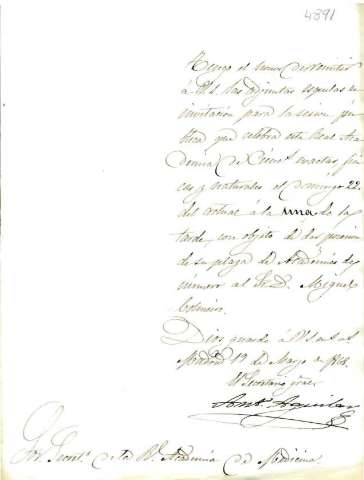 4391
Tengo el honor de remitir
á V.S. las adjuntas esquelas de
invitacion para la sesion pú-
blica que celebra esta Real Aca
demia de Cienc.s exactas, físi
cas y naturales el domingo 22
del actual á la una de la
tarde, con objeto de dar posesion
de su plaza de Académico de
número al Sr. D. Miguel
Colmeiro.
Dios guarde á V.S. m.s a.s
Madrid 19 de Mayo de
El Secretario gral.
Ant.o Aguilar
Sor. Secret.o de la R. Academia de Medicina.